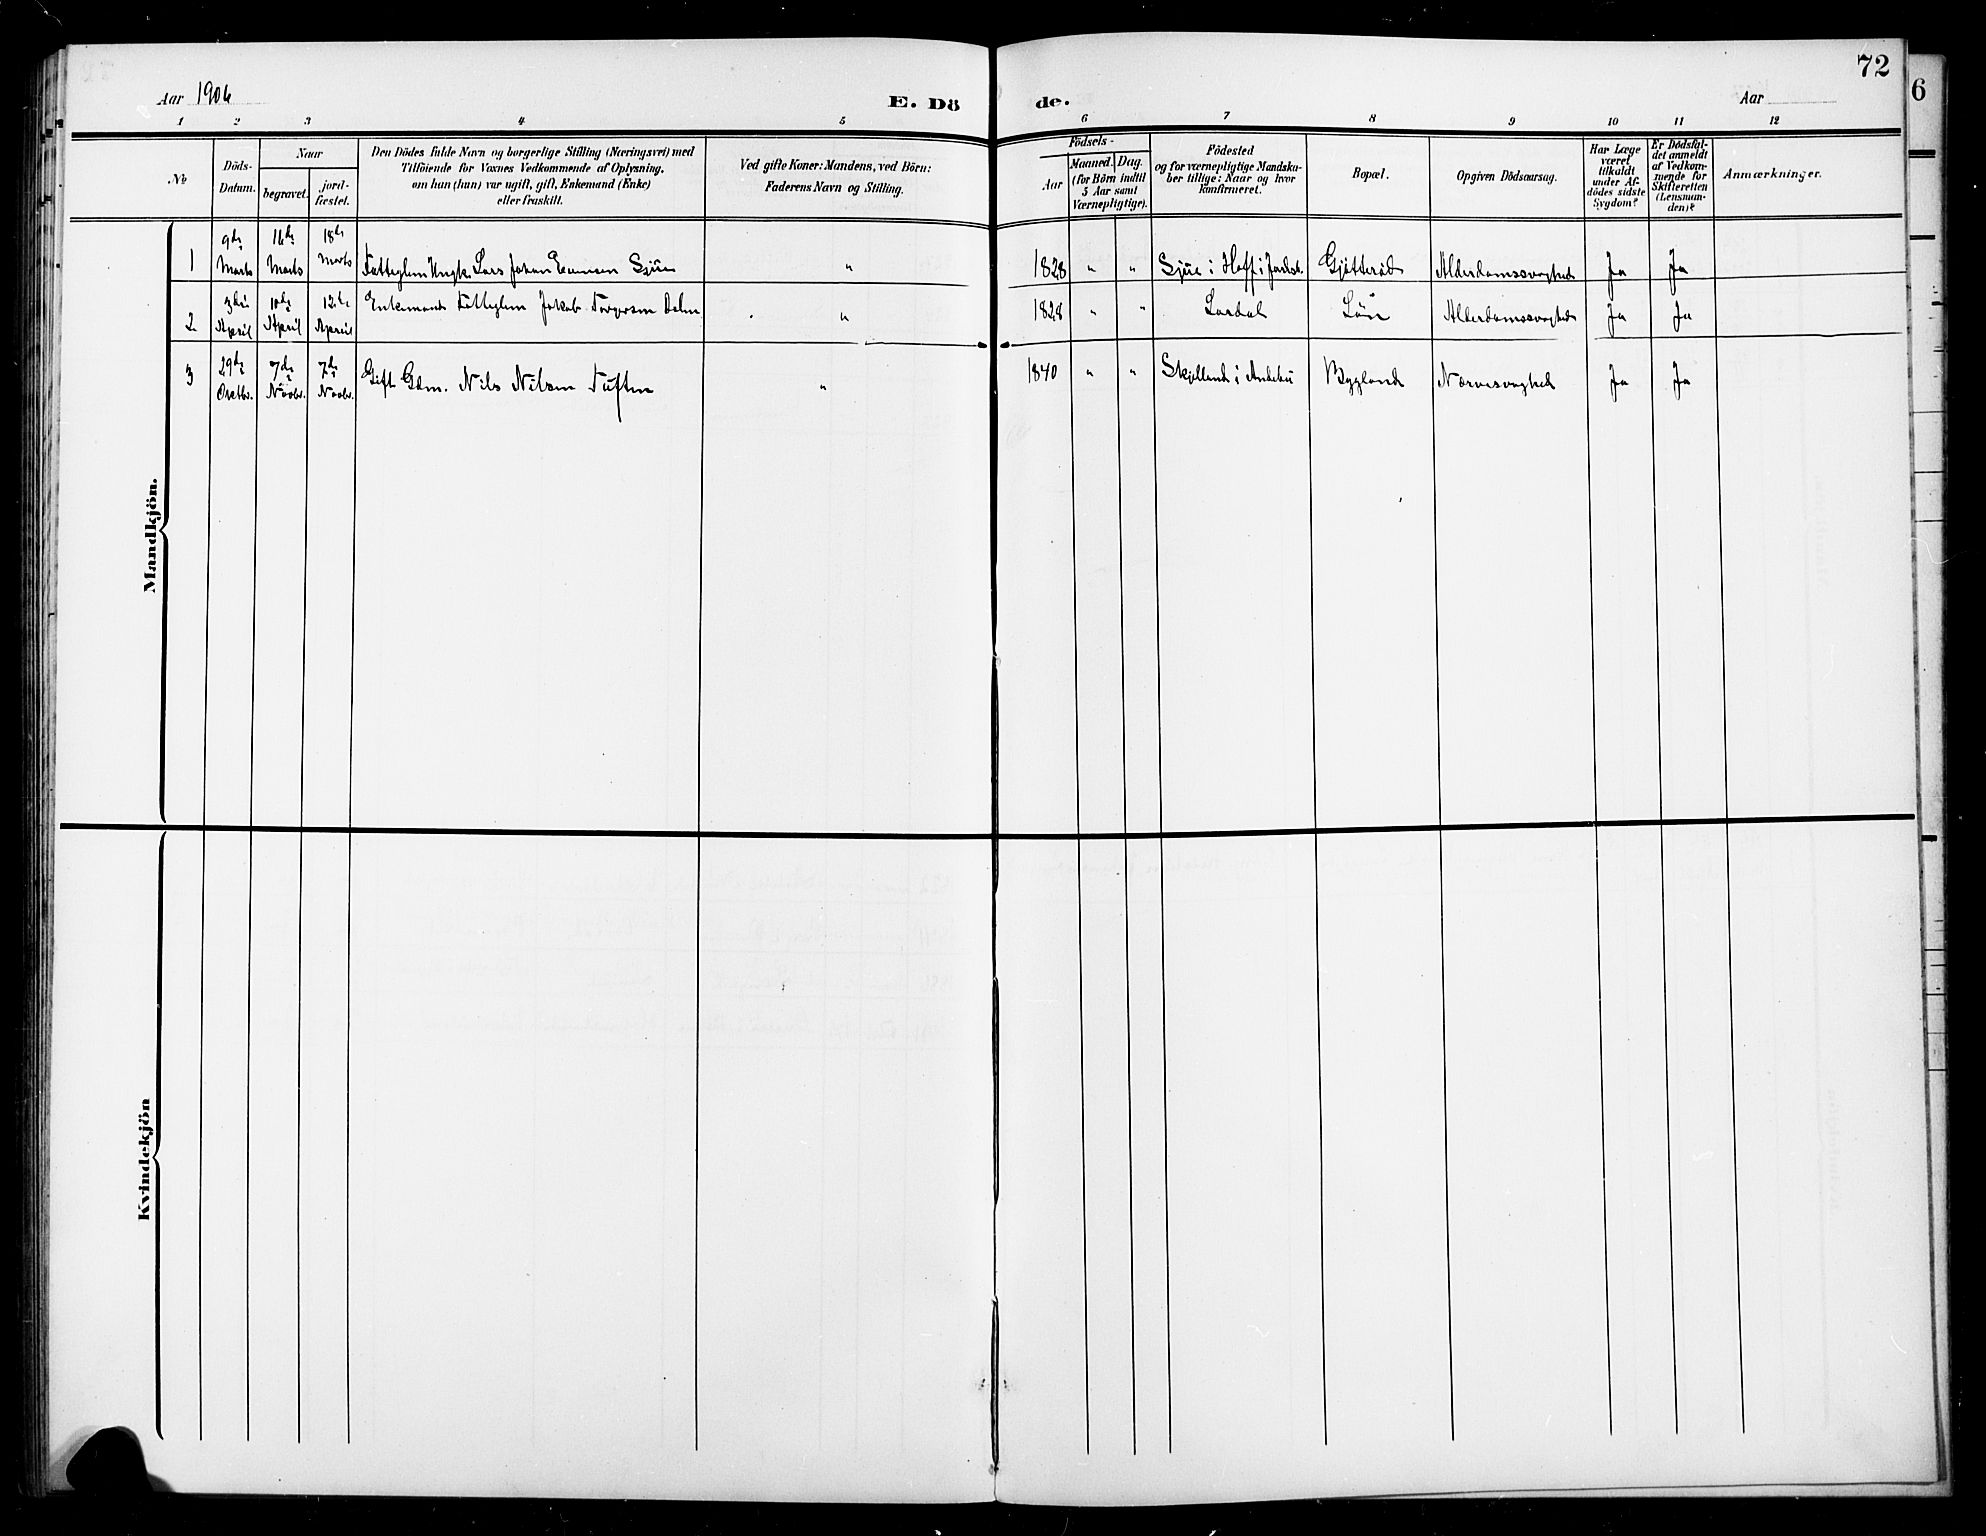 72
6
Aar 1906
E. Dö
de.
Aar
1 2 3 4 5 6 7 8 9 10 11 12
№
Döds-
Datum.
Naar
begravet.
jord-
fæstet.
Den Dödes fulde Navn og borgerlige Stilling (Næringsvei) med
Tilföiende for Voxnes Vedkommende af Oplysning,
om han (hun) var ugift, gift, Enkemand (Enke)
eller fraskilt.
Ved gifte Koner: Mandens, ved Börn:
Faderens Navn og Stilling.
Födsels-
Aar
Maaned. Dag.
(for Börn indtil
5 Aar samt
Værnepligtige).
Födested
og for værnepligtige Mandska-
ber tillige: Naar og hvor
konfirmeret.
Bopæl.
Opgiven Dödsaarsag.
Har Læge
været
tilkaldt
under Af-
dödes sidste
Sygdom?
Er Dödsfal-
det anmeldt
af Vedkom-
mende for
Skifteretten
(Lensman-
den)?
Anmærkninger.
Mandkjön.
1
9de
Marts
16de
Marts
18de
Marts
Fattiglem Ungk. Lars Johan
"
1828 " "
i Hoff i Jarlsb.
Gjötteröd
Alderdomssvaghed
Ja
Ja
2
3die
April
10de
April
12te
April
Enkemand Fattiglem Jakob Torgersen Dalen
"
1828 " "
Lardal
Alderdomssvaghed
Ja
Ja
3
29de
Octbr.
7de
Novbr.
7de
Novbr.
Gift Gdm. Nils Nilsen Tuften
"
1840 " "
Skjelland i Andebu
Bygland
Nervesvaghed
Ja
Ja
Kvindekjön